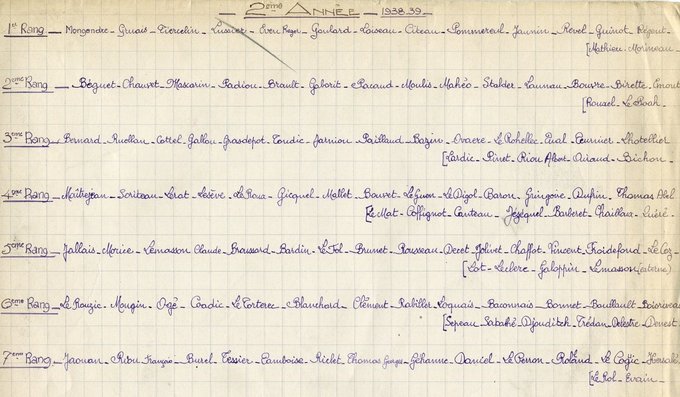 2ème ANNÉE _ 1938-39_
1er Rang _ Mongendre _ Gruais _ Tiercelin _ Lussier _ Even Roger _ Goulard _ Loiseau _ Citeau _ Pommereuil _ Jaunin _ Revel _ Guinot _ Régent
[Mathieu _ Morineau _
2ème Rang _ Béguet _ Chauvet _ Mascarin _ Padiou _ Brault _ Gaborit _ Pacaud _ Moulis _ Mahéo _ Stalder _ Launau _ Bouvre _ Birette _
[Rouael _ Le Boah _
3ème Rang _ Bernard _ Ruellan _ Cottel _ Gallou _ Grosdepot _ Toudic _ Jarnion _ Paillaud _ Bazin _ Ovaere _ Le Rohellec _ Pual _ Peurnier _ Lhotellier
[Lardic _ Pinet _ Riou Albert _ Airaud _ Bichon _
4ème Rang _ Maîtrejean _ Soriteau _ Lerat _ Lesève _ Le Roux _ Gicquel _ Mallet _ Bouvet _ Le Guen _ Le Digol _ Baron _ Gringoire _ Dufrin _ Thomas Abel
[Le Mat _ Coffignot _ Couteau _ Jézéquel _ Barberet _ Chailloux _ Quéré _
5ème Rang _ Jallais _ Morice _ Lemasson Claude _ Broussard _ Bardin _ Le Fol _ Brunet _ Rousseau _ Decet _ Jolivet _ Chaffot _ Vincent _ Froidefond _ Le Coz _
[Lot _ Leclerc _ Galoppin _ Lemasson (externe)
6ème Rang _ Le Rouzic _ Mougin _ Orgé _ Coadic _ Le Torterec _ Blanchard _ Clément _ Rabiller _ Loquais _ Baconnais _ Bonnet _ Boullault _ Boisriveau
[Sepeau _ Sabathé _ Djouditch _ Trédan _ Delestre _ Denest
7ème Rang _ Jaouan _ Riou François _ Burel _ Tessier _ Camboise _ Riclet _ Thomas Georges _ Géhanne _ Daniel _ Le Perron _ Rolland _ Le Cozic _
[Le Rol _ Evain _